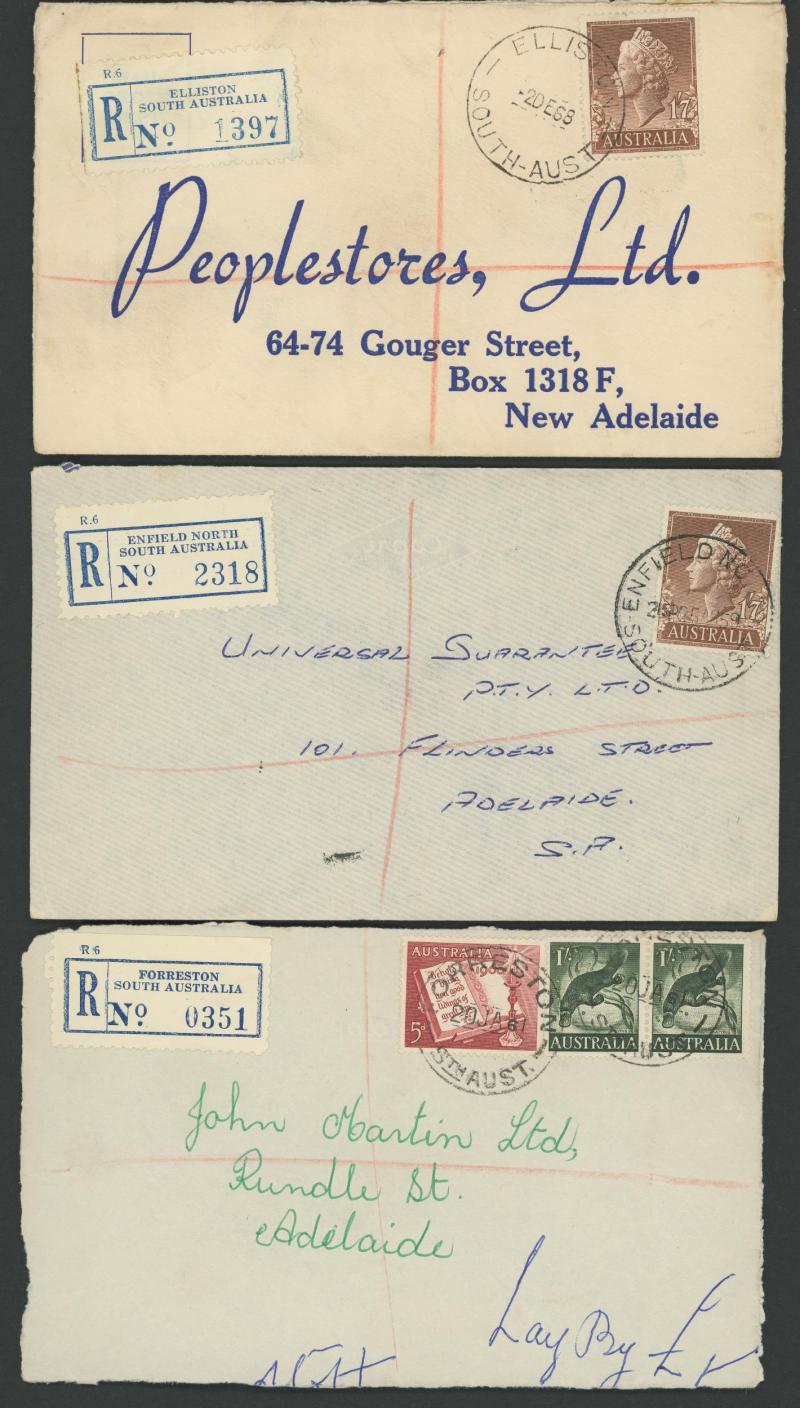 R.6
ELLISTON
SOUTH AUSTRALIA
R No 1397
ELLIS
-2DE68
SOUTH-AUST
1/7
AUSTRALIA
Peoplestores, Ltd.
64-74 Gouger Street,
Box 1318 F,
New Adelaide
R.6
ENFIELD NORTH
SOUTH AUSTRALIA
R No 2318
ENFIELD
SOUTH-AUS
1/7
AUSTRALIA
UNIVERSAL GUARANTEE
P.T.Y. L.T.D.
101. FLINDERS STREET
ADELAIDE.
S.A.
R 6
FORRESTON
SOUTH AUSTRALIA
R No 0351
AUSTRALIA
Behold
good
tidings of
5d
FORRESTON
20JA61
STH AUST.
1/-
AUSTRALIA
1/-
AUSTRALIA
John Martin Ltd,
Rundle St.
Adelaide
Lay By